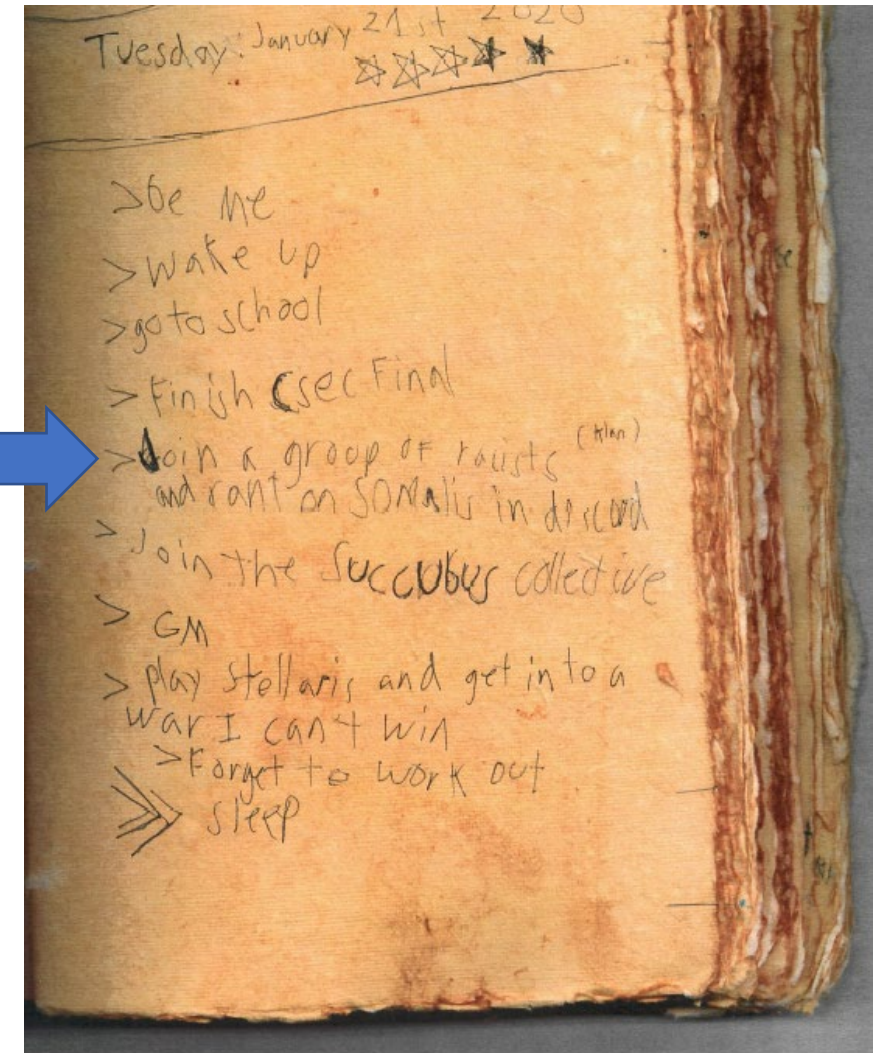 Tuesday: January 21st 2020
>be me
>wake up
>go to school
>Finish Csec Final
>Join a group of racists (klan)
and rant on SOMalis in discord
>Join the Succubus collective
> GM
> play stellaris and get into a
war I can't win
>Forget to work out
>> sleep